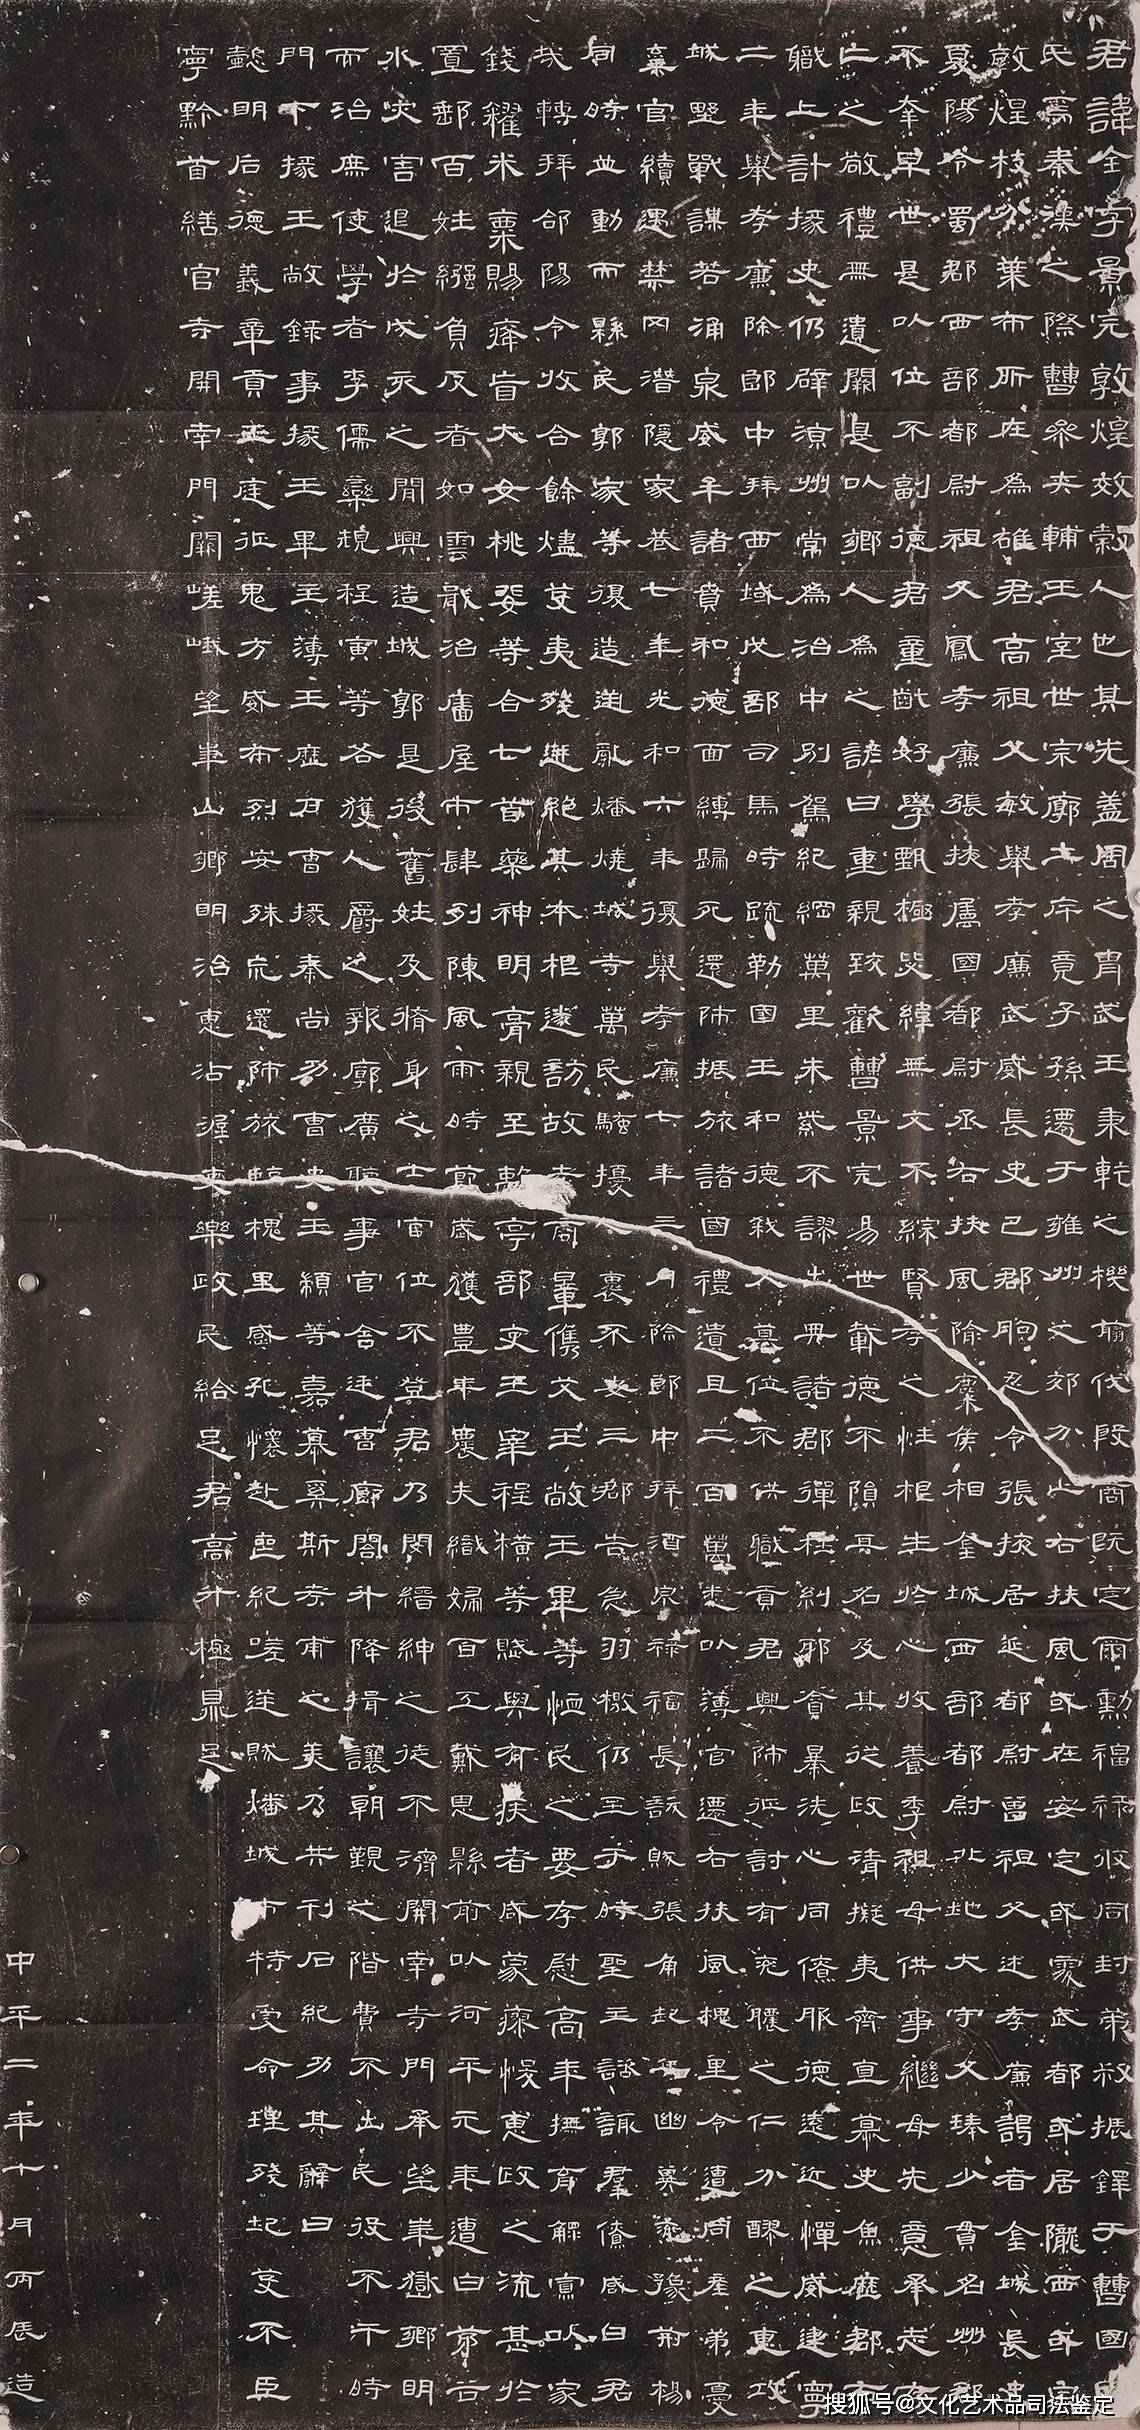 君諱全字景完敦煌效穀人也其先蓋周之胄武王秉乾之機翦伐殷商既定爾勳福祿攸同封弟叔振鐸于曹國因
氏焉秦漢之際曹參夾輔王室世宗廓土斥竟子孫遷于雍州之郊分止右扶風或在安定或處武都或居隴西或家
敦煌枝分葉布所在為雄君高祖父敏舉孝廉武威長史巴郡朐忍令張掖居延都尉曾祖父述孝廉謁者金城長史
夏陽令蜀郡西部都尉祖父鳳孝廉張掖屬國都尉丞右扶風隃麋侯相金城西部都尉北地大守父琫少貫名州郡
不幸早世是以位不副德君童齔好學甄極毖緯無文不綜賢孝之性根生於心收養季祖母供事繼母先意承志存
亡之敬禮無遺闕是以鄉人為之諺曰重親致歡曹景完易世載德不隕其名及其從政清擬夷齊直慕史魚歷郡右
職上計掾史仍辟涼州常為治中別駕紀綱萬里朱紫不謬出典諸郡彈枉糾邪貪暴洗心同僚服德遠近憚威建寧
二年舉孝廉除郎中拜西域戊部司馬時疏勒國王和德弒父篡位不供職貢君興師征討有兗膿之仁分醪之惠攻
城野戰謀若涌泉威牟諸賁和德面縛歸死還師振旅諸國禮遺且二百萬悉以薄官遷右扶風槐里令遭同產弟憂
棄官續遇禁冈潛隱家巷七年光和六年復舉孝廉七年三月除郎中拜酒泉祿福長訞賊張角起兵幽冀兗豫荊楊
同時並動而縣民郭家等復造逆亂燔燒城寺萬民騷擾人裹不安三郡告急羽檄仍至于時聖主諮諏群僚咸曰君
哉轉拜郃陽令收合餘燼芟夷殘迸絕其本根遂訪故老商量儁艾王敞王畢等恤民之要存慰高年撫育鰥寡以家
錢糴米粟賜癃盲大女桃婓等合七首藥神明膏親至離亭部吏王宰程橫等賦與有疾者咸蒙瘳悛惠政之流甚於
置郵百姓繈負反者如雲戢治廧屋市肆列陳風雨時節歲獲豐年農夫織婦百工戴恩縣前以河平元年遭白茅谷
水灾害退於戌亥之閒興造城郭是後舊姓及脩身之士官位不登君乃閔縉紳之徒不濟開南寺門承望華嶽鄉明
而治庶使學者李儒欒規程寅等各獲人爵之報廓廣聽事官舍廷曹廊閣升降揖讓朝覲之階費不出民役不干時
門下掾王敞錄事掾王畢主薄王歷戶曹掾秦尚功曹史王顓等嘉慕奚斯考甫之美乃共刊石紀功其辭曰
懿明后德義章貢王庭征鬼方威布烈安殊巟還師旅臨槐里感孔懷赴喪紀嗟逆賊燔城市特受命理殘圮芟不臣
寧黔首繕官寺開南門闕嵯峨望華山鄉明治惠沾渥吏樂政民給足君高升極鼎足
中平二年十月丙辰造
搜狐号@文化艺术品司法鉴定